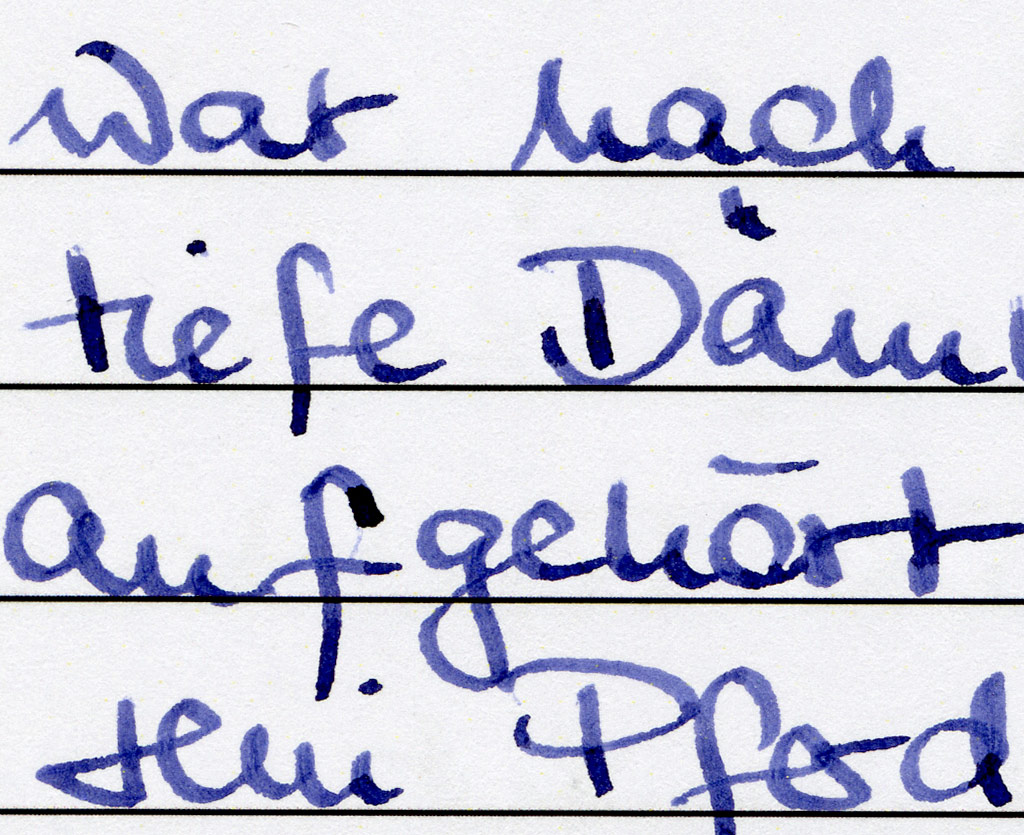 war nach
tiefe Däm
aufgehört
sein Pferd